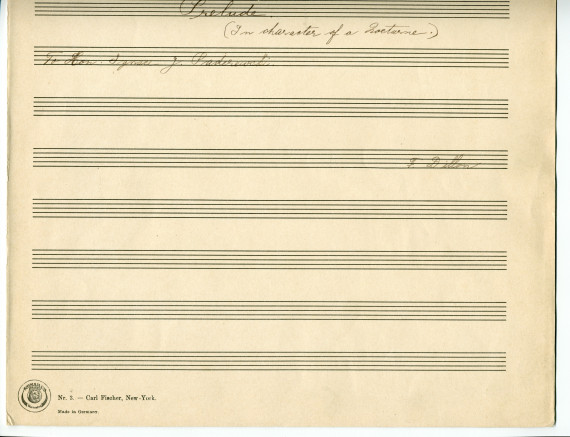 Prelude.
(In character of a Nocturne.)
To Hon. Ignace J. Paderewski.
F. Dillon
Nr. 2. — Carl Fischer, New-York.
Made in Germany